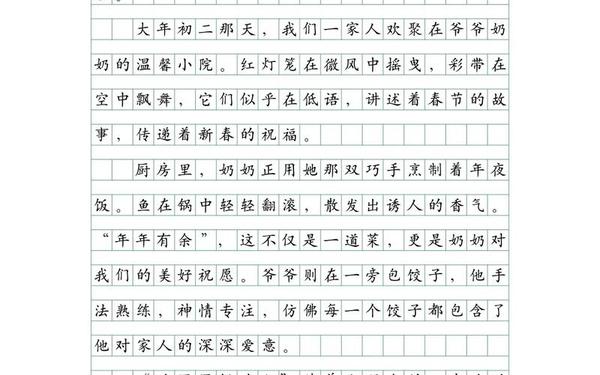 大年初二那天，我们一家人欢聚在爷爷奶
奶的温馨小院。红灯笼在微风中摇曳，彩带在
空中飘舞，它们似乎在低语，讲述着春节的故
事，传递着新春的祝福。
厨房里，奶奶正用她那双巧手烹制着年夜
饭。鱼在锅中轻轻翻滚，散发出诱人的香气。
“年年有余”，这不仅是一道菜，更是奶奶对
我们的美好祝愿。爷爷则在一旁包饺子，他手
法熟练，神情专注，仿佛每一个饺子都包含了
他对家人的深深爱意。